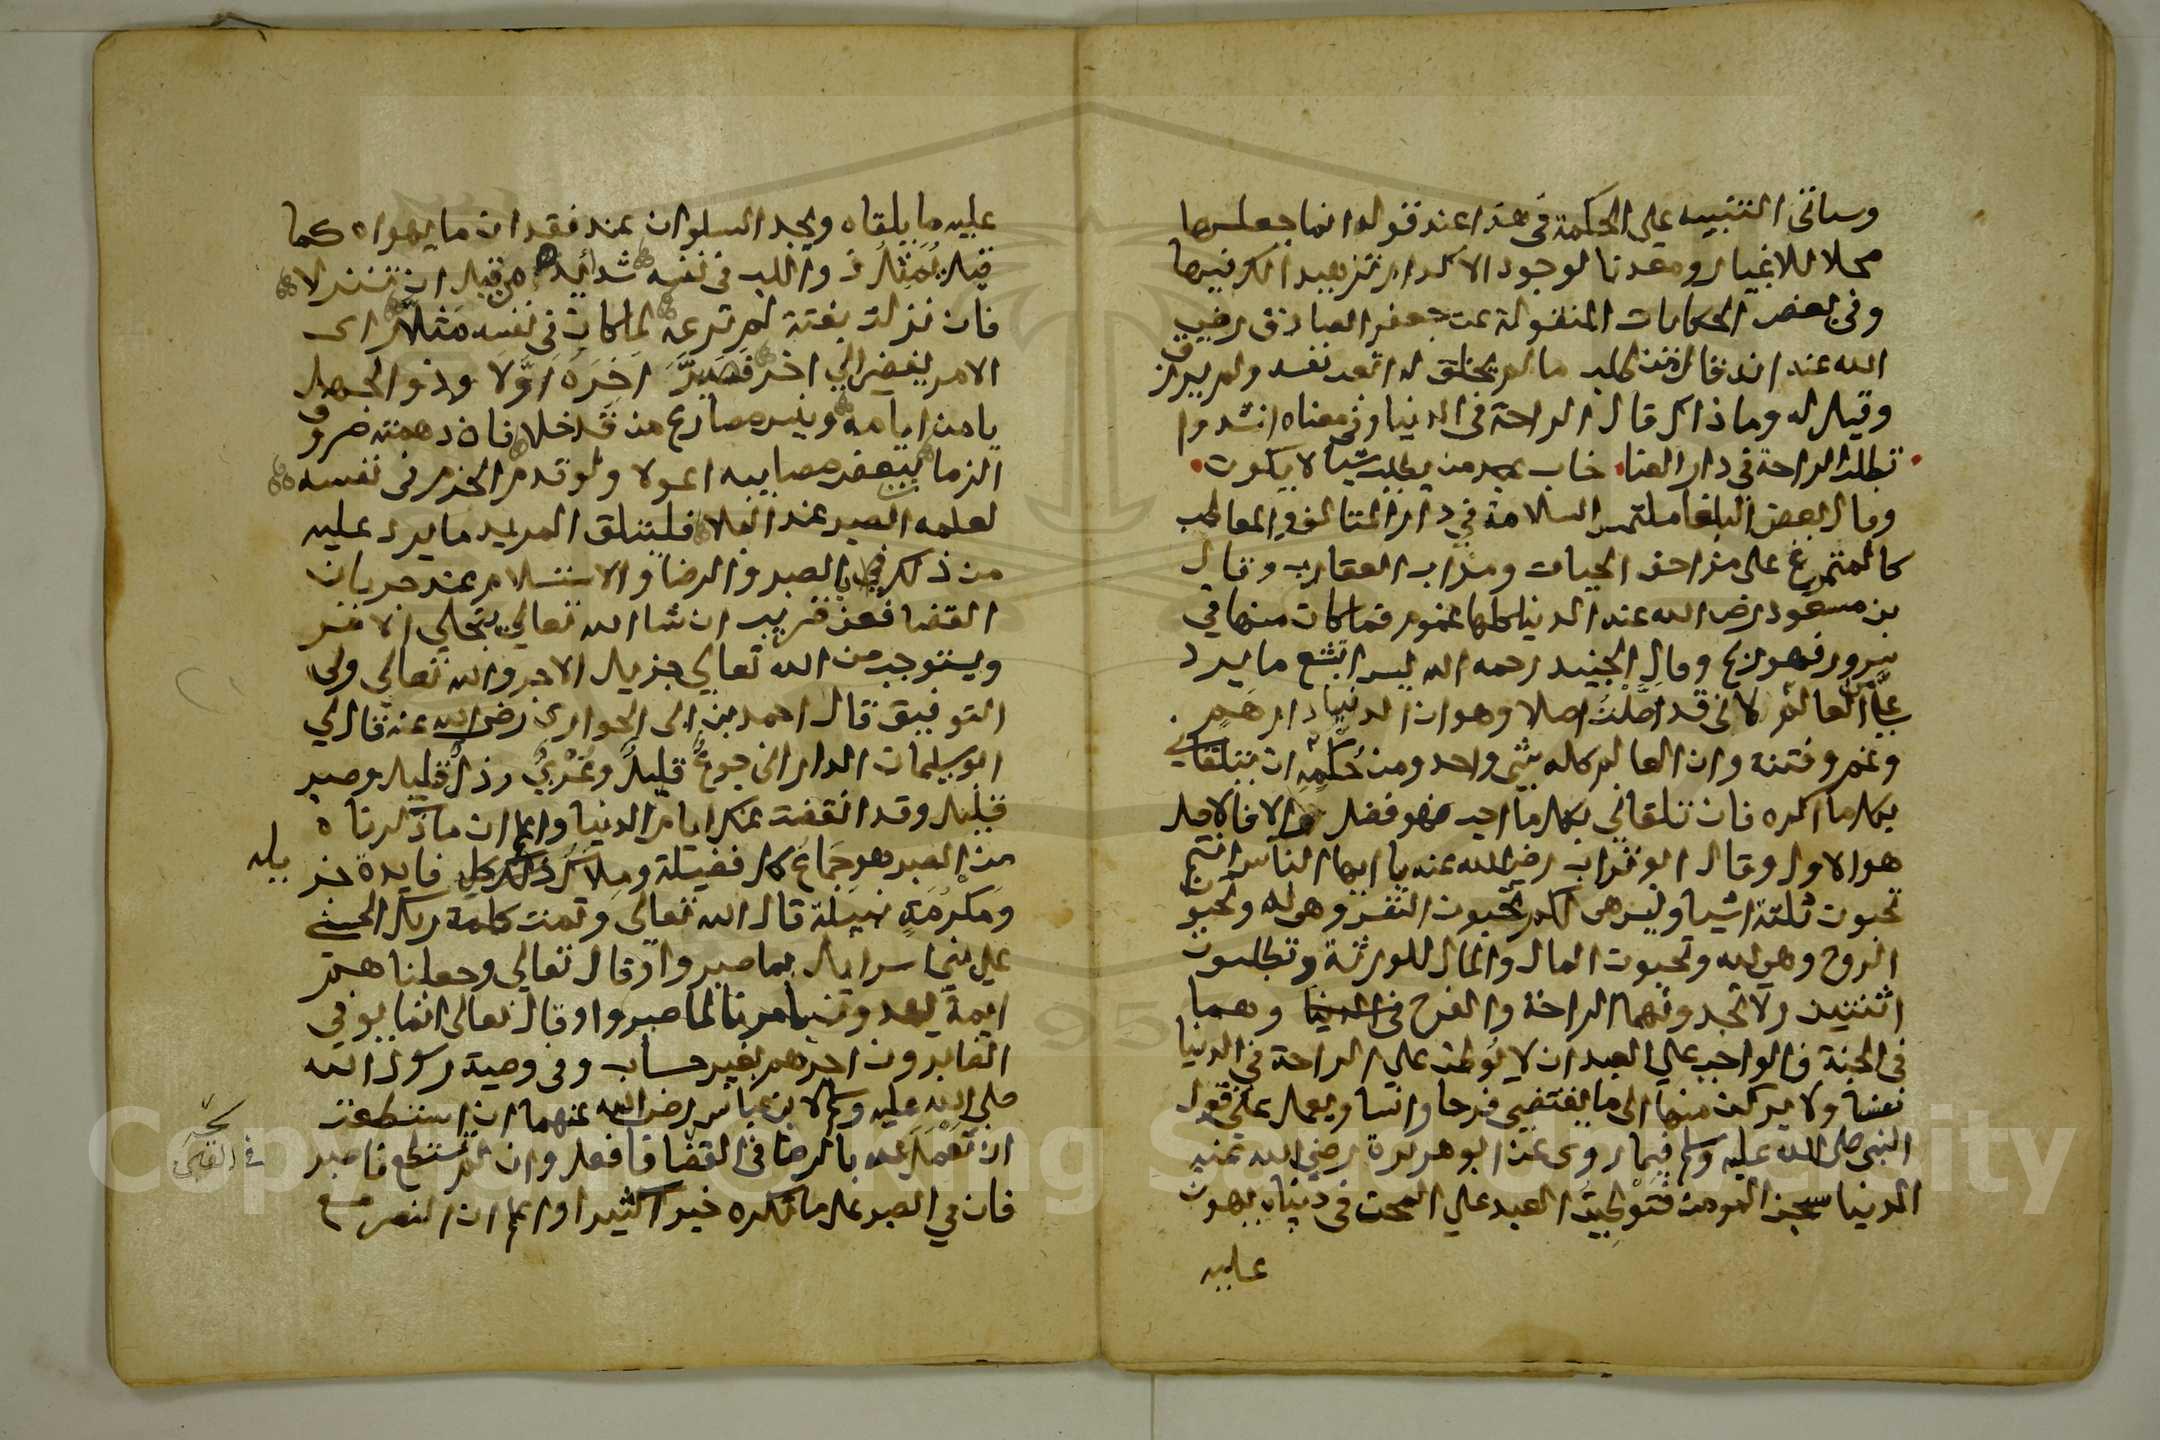 وساتى التنبيه على الحكمة فى هذا عند قوله انما جعلها
محلا للاغيار ومعدنا لوجود الاكدار تزهيدا لك فيها
وفى بعض الحكايات المنقولة عن جعفر الصادق رضي
الله عنه انه قال من طلب ما لم يخلق له اتعب نفسه ولم يرزق
وقيل له وما ذاك قال الراحة فى الدنيا وفى معناه انشدوا
تطلب الراحة فى دار العنا خاب عبد من يطلب شيا لا يكون
وقال بعض البلغا ملتمس السلامة في دار المتالف والمعاطب
كالمتمرغ على مزاحف الحيات ومداب العقارب وقال
بن مسعود رضى الله عنه الدنيا كلها غموم فما كان منها في
سرور فهو ربح وقال الجنيد رحمه الله ليس ابشع ما يرد
علي من العالم لانى قد اصّلت اصلا وهو ان الدنيا دار همٍ
وغم وفتنه وان العالم كله شى واحد ومن حُكمِهِ ان يتلقاني
بكل ما اكره فان تلقاني بكل ما احب فهو فضل والا فالاصل
هو الاول وقال ابو تراب رضي الله عنه يا ايها الناس انتم
تحبون ثلثة اشيا وليس هى لكم تحبون النفس وهى لله وتحبون
الروح وهى لله وتحبون المال والمال للورثة وتطلبون
اثنين ولا تجدونهما الراحة والفرح فى الدنيا وهما
فى الجنة فالواجب على العبد ان لا يوطن على الراحة فى الدنيا
نفسا ولا يركن منها الى ما يقتضي فرحا وانسا ويعمل على قول
النبى صلى الله عليه وسلم فيما روى عن ابو هريرة رضي الله عنه
الدنيا سجن المومن فتوطين العبد على المحن فى دنياه يهون
عليه
عليه ما يلقاه ويجد السلوان عند فقدان ما يهواه كما
قيل يُمَثِّلُ ذو اللب فى نفسه شدائده من قبل ان تنزلا
فان نزلت بغتة لم ترعه لما كان فى نفسه مَثَلا راى
الامر يفضي الي اخر فصيّر اخره اوّلا وذو الجهل
يامن ايامه وينسى مصارع من قد خلا فان دهمته صروف
الزمان ببعض مصايبه اعولا ولو قدم الحزم فى نفسه
لعلمه الصبر عند البلا فليتلق المريد ما يرد عليه
من ذلك بالصبر والرضا والاستسلام عند جريان
القضا فعن قريب ان شا الله تعالي يتجلي الامر
ويستوجب من الله تعالي جزيل الاجر والله تعالي ولى
التوفيق قال احمد بن ابى الحوارى رضى الله عنه قال لي
ابو سليمان الدارانى جوعٌ قليل وعُرْيٌ قليل وذلٌ قليل وصبر
قليل وقد انقضت عنك ايام الدنيا واعلم ان ما ذكرناه
من الصبر هو جماع كل فضيلة وملاك كل فايدة جزيله
ومكرمَةٍ نبيلة قال الله تعالى وتمت كلمة ربك الحسنى
على بنى اسرايل بما صبروا وقال تعالي وجعلنا منهم
ايمة يهدون بامرنا لما صبروا وقال تعالى انما يوفى
الصابرون اجرهم بغير حساب وفى وصية رسول الله
صلى الله عليه وسلم لابن عباس رضى الله عنهما ان استطعت
ان تعمل لله بالرضا فى القضا فافعل وان لم تستطع فاصبر
فان في الصبر على ما تكره خيرا كثيرا واعلم ان النصر مع